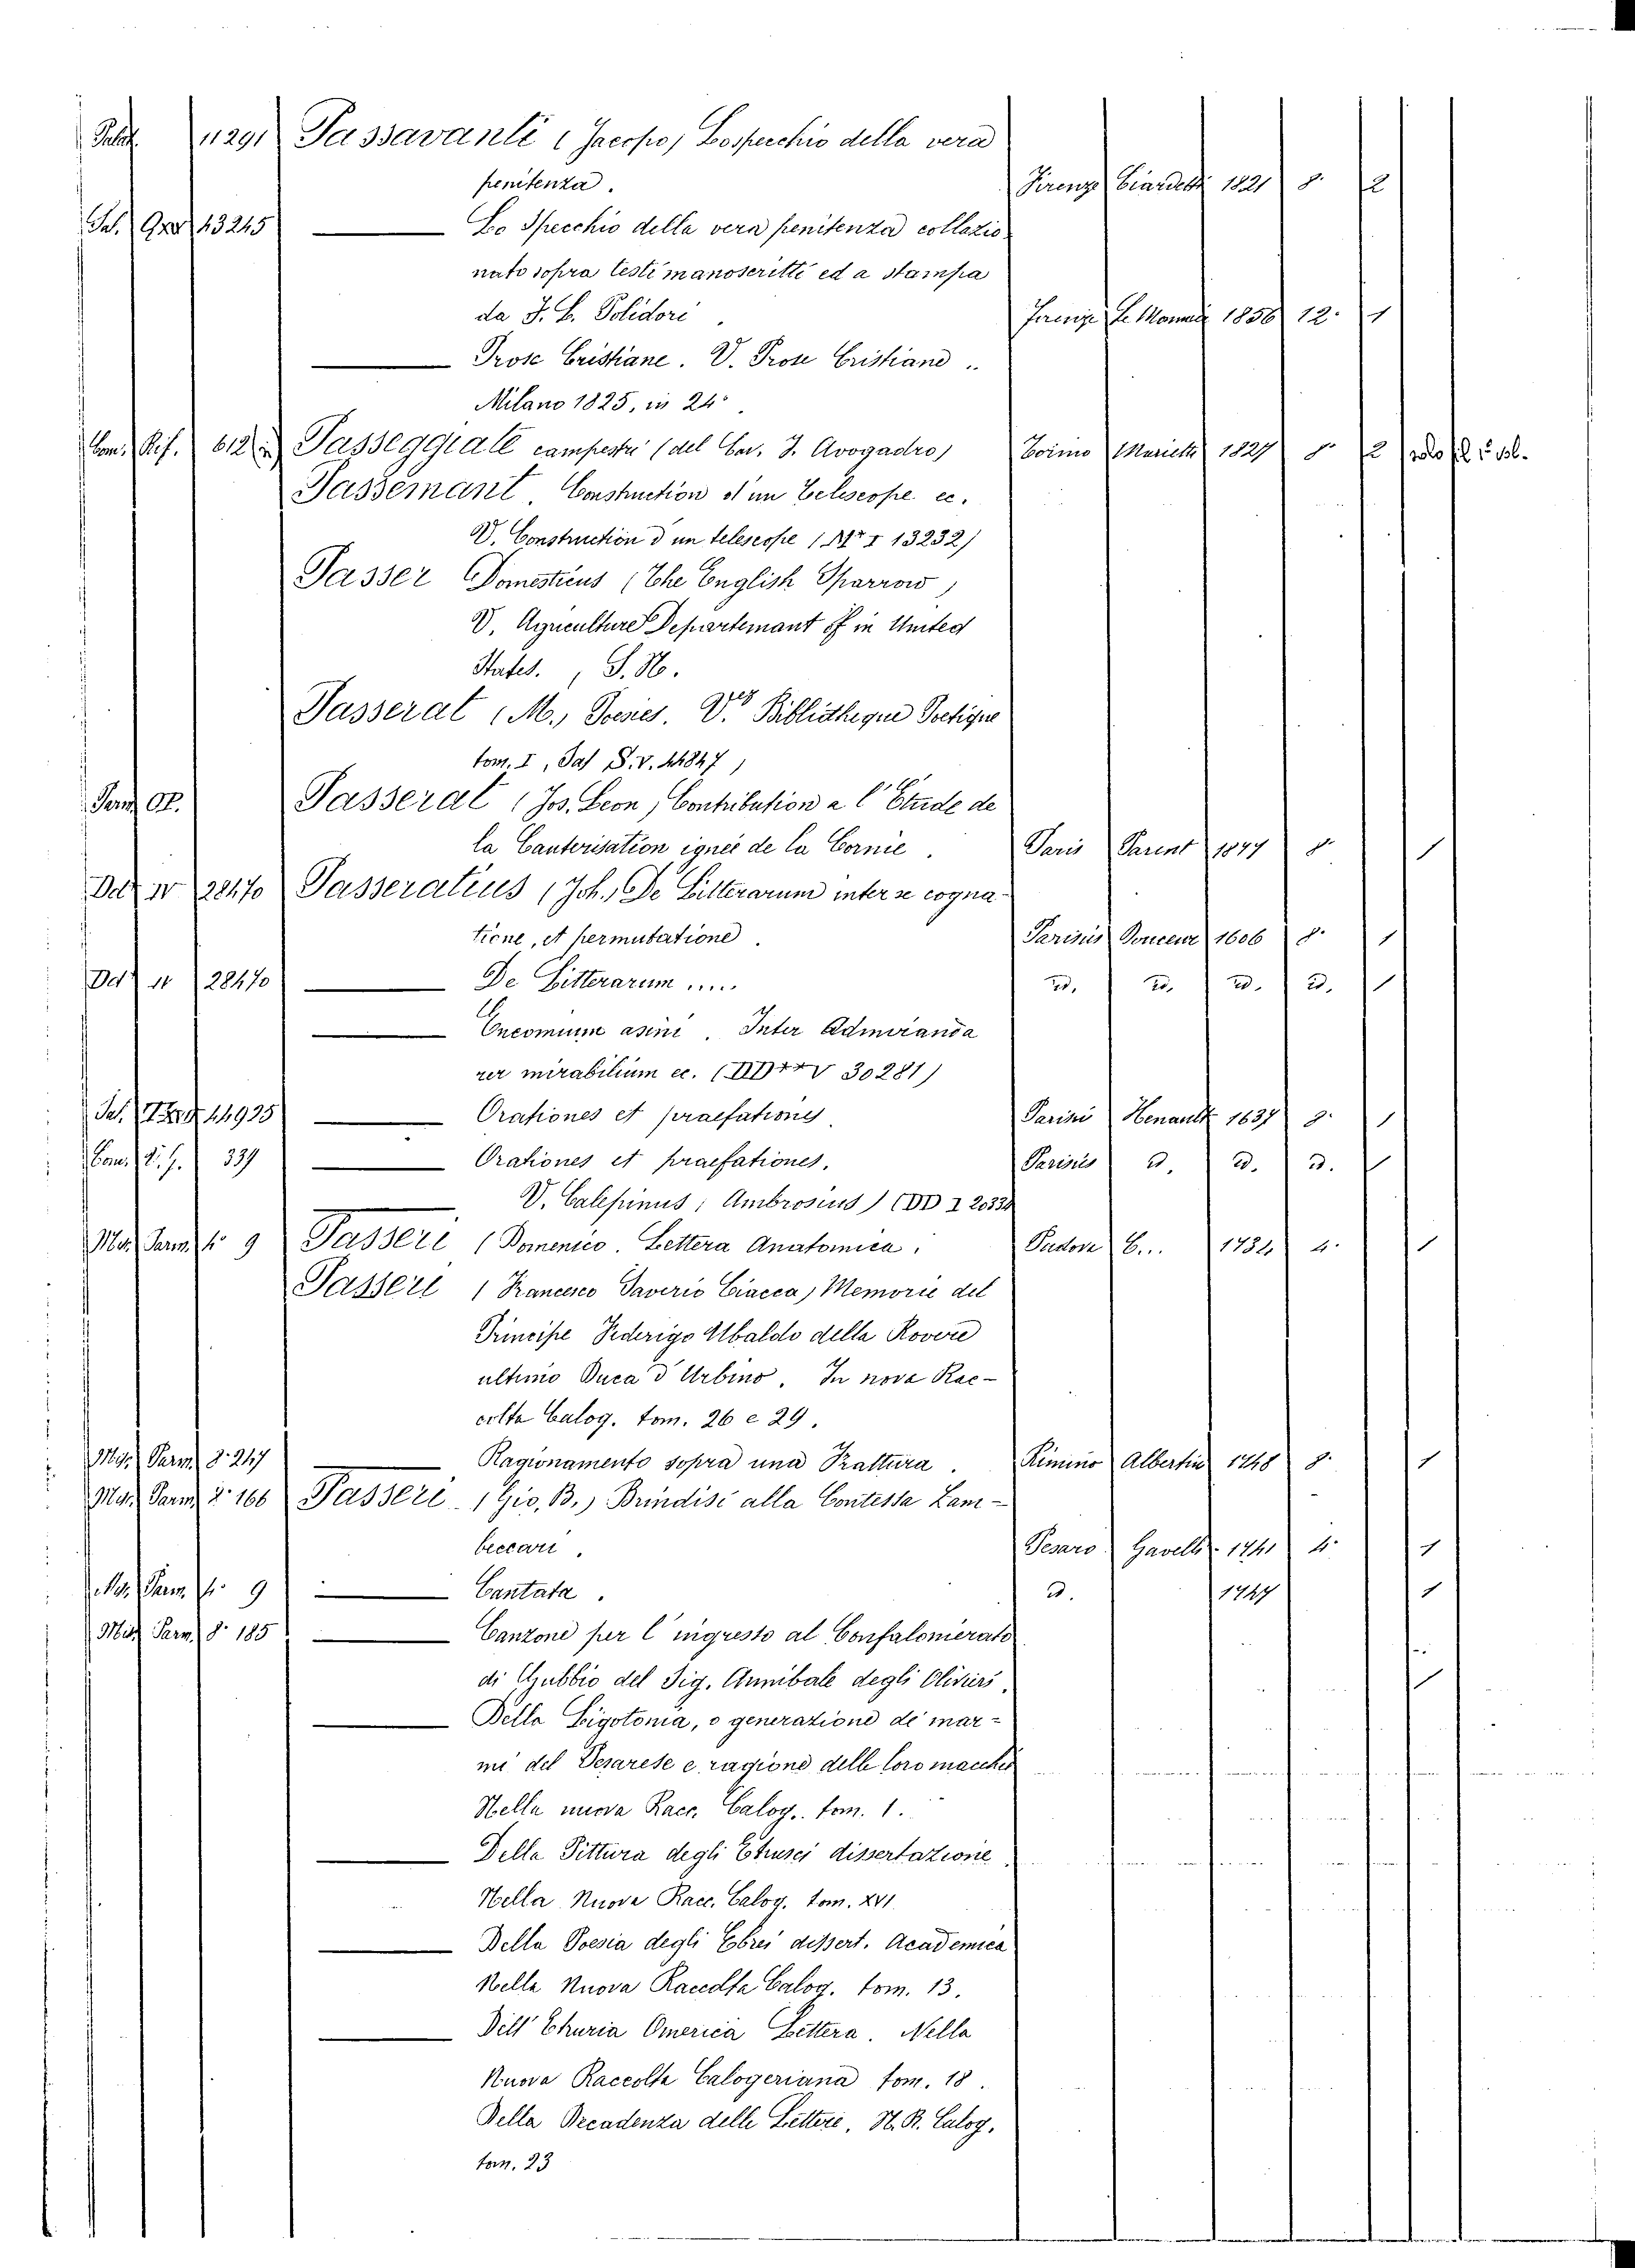 Palat. 11291 Passavanti (Jacopo) Lo specchio della vera
penitenza. Firenze Ciardetti 1821 8. 2
Sal. 13245 Lo Specchio della vera penitenza collazio
nato sopra testi manoscritti ed a stampa
da F. L. Polidori. Firenze Le Monnier 1856 12. 1
Prose Cristiane. V. Prose Cristiane..
Milano 1825, in 24°
Com. Rif. 612 Passeggiate campestri (del Cav. J. Avogadro) Torino Marietti 1827 8 2 solo il 1. vol.
Passemant. Construction d'un Telescope ec.
V. Construction d'un telescope ( 13232)
Passer Domesticus (The English Sparrow)
V. Agriculture Departemant of in United
States. , S. N.
Passerat (M.) Poesies. V. Bibliotheque Poetique
tom. I, Sal S.V. 44847)
Parm. Passerat (Jos. Leon) Contribution a l'Etude de
la Cauterisation ignée de la Cornie. Paris Parent 1877 8 1
28470 Passeratius (Joh.) De Litterarum inter se cogna-
tione, et permutatione. Parisiis Douceur 1606 8. 1
28470 De Litterarum ..... id. id. id. id. 1
Encomium asini. Inter Admiranda
rer mirabilium ec. ( 30281)
Sal. 44935 Orationes et praefationes. Parisii Henault 1637 8. 1
Com. 339 Orationes et praefationes. Parisiis id. id. id. 1
V. Calepinus, Ambrosius) (DD I 20334
Mis. Parm. 4. 9 Passeri (Domenico. Lettera Anatomica. Padova C... 1734 4. 1
Passeri (Francesco Saverio Ciacca) Memorie del
Principe Federigo Ubaldo della Rovere
ultimo Duca d'Urbino. In nova Rac-
colta Calog. tom. 26 e 29.
Mis. Parm. 8. 247 Ragionamento sopra una Frattura. Rimino Albertin 1748 8. 1
Mis. Parm. 8. 166 Passeri (Gio. B.) Brindisi alla Contessa Lam-
beccari. Pesaro Gavelli 1741 4. 1
Mis. Parm. 4. 9 Cantata. id. 1747 1
Mis. Parm. 8. 185 Canzone per l'ingresso al Confalonierato
di Gubbio del Sig. Annibale degli Olivieri. 1
Della Ligotonia, o generazione di mar-
mi del Pesarese e ragione delle loro macchie
Nella nuova Racc. Calog. tom. 1.
Della Pittura degli Etrusci dissertazione
Nella Nuova Racc. Calog. tom. XVI
Della Poesia degli Ebrei dissert. Academica
Nella Nuova Raccolta Calog. tom. 13.
Dell'Etruria Omerica Lettera. Nella
Nuova Raccolta Calogeriana tom. 18.
Della Decadenza delle Lettere, N. R. Calog.
tom. 23